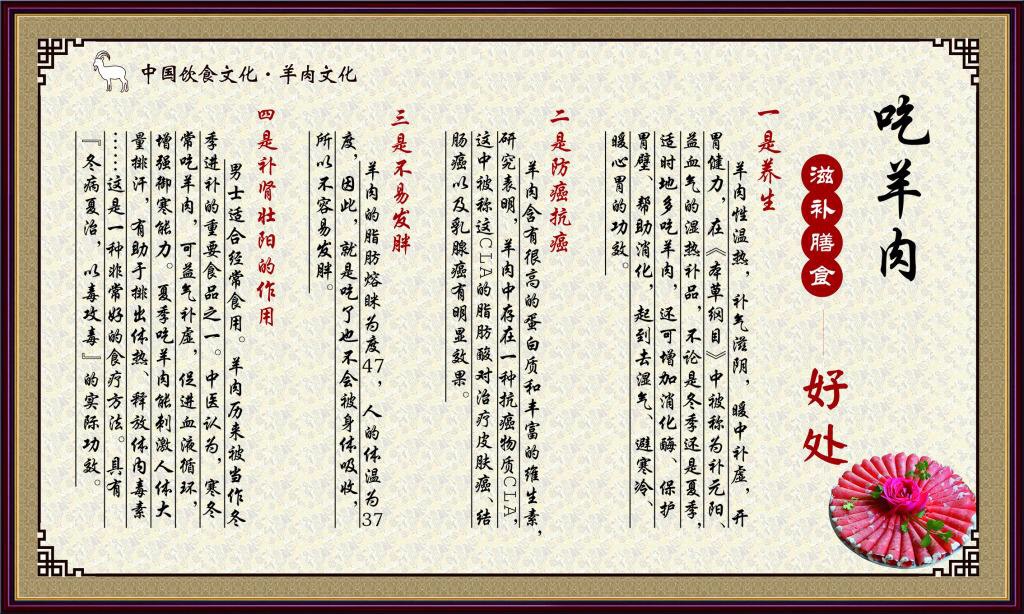 中国饮食文化·羊肉文化
吃羊肉
滋补膳食
好处
一是养生
羊肉性温热，补气滋阴，暖中补虚，开
胃健力，在《本草纲目》中被称为补元阳、
益血气的湿热补品，不论是冬季还是夏季，
适时地多吃羊肉，还可增加消化酶、保护
胃壁、帮助消化，起到去湿气、避寒冷、
暖心胃的功效。
二是防癌抗癌
羊肉含有很高的蛋白质和丰富的维生素，
研究表明，羊肉中存在一种抗癌物质CLA，
这中被称这CLA的脂肪酸对治疗皮肤癌、结
肠癌以及乳腺癌有明显效果。
三是不易发胖
羊肉的脂肪熔眯为度47，人的体温为37
度，因此，就是吃了也不会被身体吸收，
所以不容易发胖。
四是补肾壮阳的作用
男士适合经常食用。羊肉历来被当作冬
季进补的重要食品之一。中医认为，寒冬
常吃羊肉，可益气补虚，促进血液循环，
增强御寒能力。夏季吃羊肉能刺激人体大
量排汗，有助于排出体热、释放体内毒素
……这是一种非常好的食疗方法。具有
『冬病夏治，以毒攻毒』的实际功效。